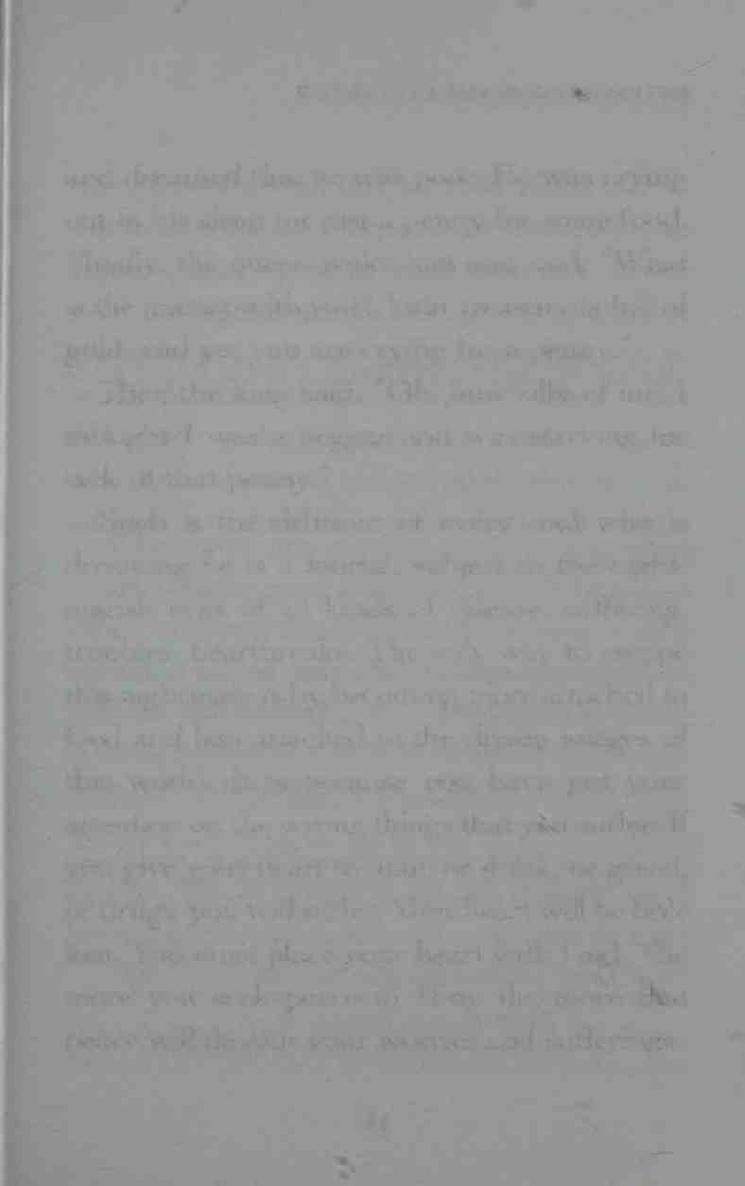 and dreamed that he was poor. He was crying
out in his sleep for just a penny for some food.
Finally, the queen woke him and said, "What
is the matter with you? Your treasury is full of
gold, and yet you are crying for a penny."
Then the king said, "Oh, how silly of me. I
thought I was a beggar and was starving for
lack of that penny."
Such is the delusion of every soul who is
dreaming he is a mortal, subject to the night-
marish evils of all kinds of disease, suffering,
troubles, heartbreaks. The only way to escape
this nightmare is by becoming more attached to
God and less attached to the dream images of
this world. It is because you have put your
attention on the wrong things that you suffer. If
you give your heart to man, or drink, or greed,
or drugs, you will suffer. Your heart will be bro-
ken. You must place your heart with God. The
more you seek peace in Him, the more that
peace will devour your worries and sufferings.